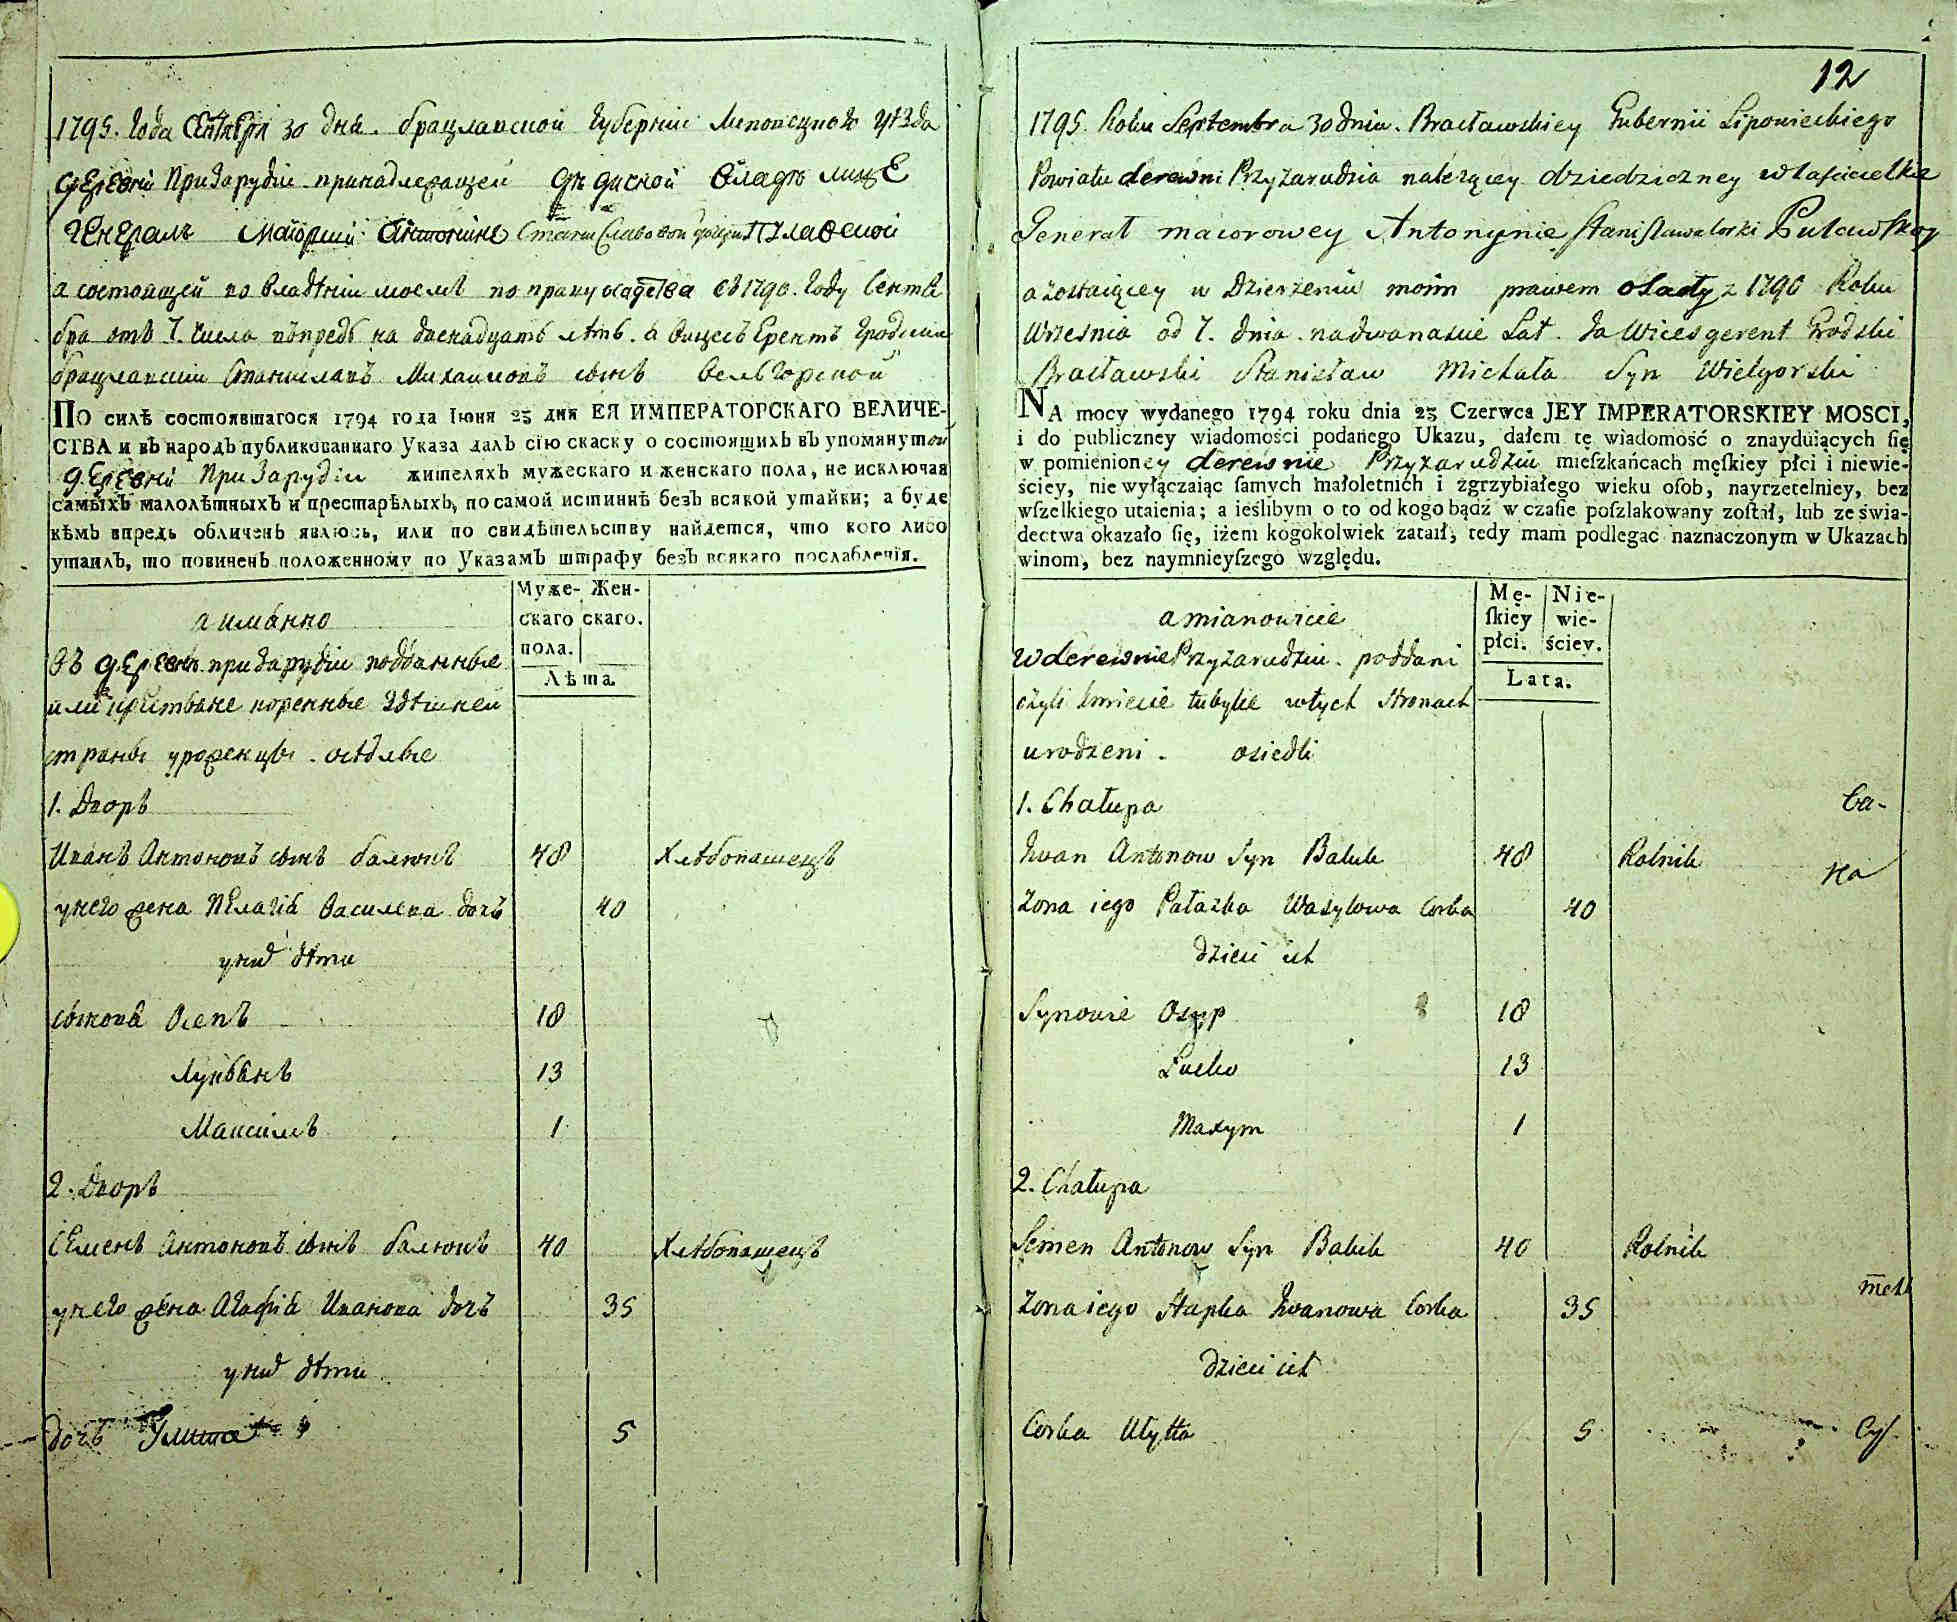 1795. Года Сентября 30 дня. брацлавской губернии Липовецкого уѣзда
деревни Призарудіи принадлежащей дѣдиской владѣлице
Генералъ Маіорши Антонине Станиславовой дочери Пулавской
а состоящей во владѣніи моемъ по праву осадства съ 1790. Году Сентя
бря отъ 7. числа впредь на двенадцать лѣтъ. а Вицесъ Герентъ Гродскій
брацлавскій Станиславъ Михаиловъ сынъ Вельгорской
ПО силѣ состоявшагося 1794 года Іюня 23 дня ЕЯ ИМПЕРАТОРСКАГО ВЕЛИЧЕ-
СТВА и въ народъ публикованнаго Указа далъ сію скаску о состоящихъ въ упомянутой
деревни Призарудіи жителяхъ мужескаго и женскаго пола, не исключая
самыхъ малолѣтныхъ и престарѣлыхъ, по самой истиннѣ безъ всякой утайки; а буде
кѣмъ впредь обличенъ явлюсь, или по свидѣтельству найдется, что кого либо
утаилъ, то повиненъ положенному по Указамъ штрафу безъ всякаго послабленія.
Муже- Жен-
скаго скаго.
пола.
Лѣта.
а имянно
въ деревни призарудіи подданные
или крестьяне коренные здѣшней
страны уроженцы. осѣдлые
1. Дворъ
Иванъ Антоновъ сынъ балюкъ 48 Хлѣбопашецъ
у него жена Пелагія Василева дочь 40
у них дѣти
сыновя Осепъ 18
Лукьянъ 13
Максимъ 1
2. Дворъ
Семенъ Антоновъ сынъ балюкъ 40 Хлѣбопашецъ
у него жена Агафія Иванова дочь 35
у них дѣти
дочь Улита 5
12
1795. Roku Septembra 30 dnia. Bracławskiey Gubernii Lipowieckiego
Powiatu derewni Przyzarudzia należącey dziedziczney właścicielkie
Generał maiorowey Antonynie Stanisławaiorki Puławskoy
a zostaiącey w Dzierżeniu moim prawem osady z 1790 Roku
Wrzesnia od 7. dnia. na dwanascie Lat. Ja Wicesgerent Grodzki
Bracławski Stanisław Michała Syn Wielgorski
NA mocy wydanego 1794 roku dnia 23 Czerwca JEY IMPERATORSKIEY MOSCI,
i do publiczney wiadomości podanego Ukazu, dałem tę wiadomość o znayduiących ſię
w pomienioney derewnie Przyzarudziu mieſzkańcach męſkiey płci i niewie-
ściey, nie wyłączaiąc ſamych małoletnich i zgrzybiałego wieku oſob, nayrzetelniey, bez
wſzelkiego utaienia; a ieślibym o to od kogo bądź w czaſie poſzlakowany zoſtał, lub ze świa-
dectwa okazało ſię, iżem kogokolwiek zataił, tedy mam podlegac naznaczonym w Ukazach
winom, bez naymnieyſzego względu.
Mę- Nie-
ſkiey wie-
płci. ściey.
Lata.
a mianowicie
w derewnie Przyzarudziu. poddani
czyli kmiecie tubylie w tych stronach
urodzeni. osiedli
1. Chałupa
Ba-
Iwan Antonow Syn Baluk 48 Rolnik
на
Zona iego Pałazka Wasylowa Corka 40
dzieci ich
Synowie Osyp 18
Łucko 13
Maxym 1
2. Chałupa
Semen Antonow Syn Baluk 40 Rolnik
Zona iego Hapka Iwanowa Corka 35
dzieci ich
Corka Ulytta 5